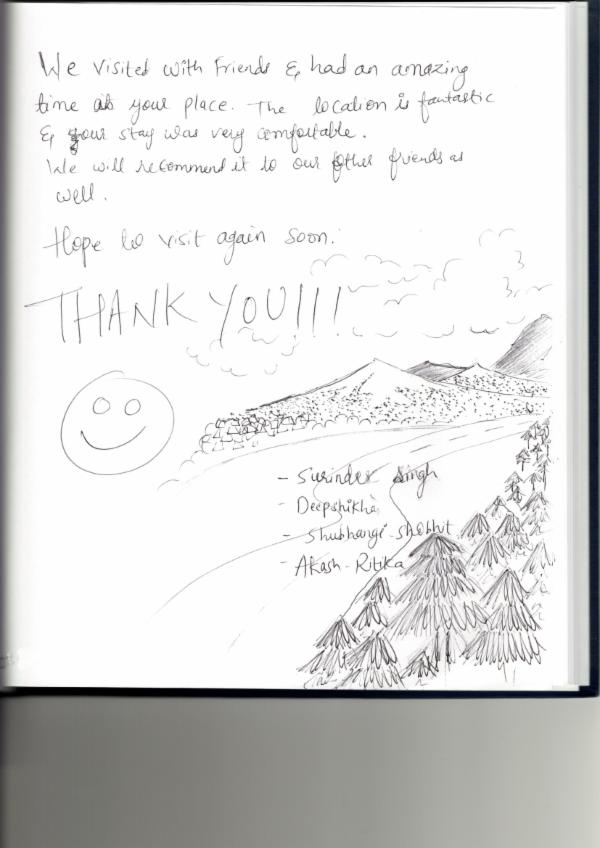 We visited with Friends & had an amazing
time at your place. The location is fantastic
& your stay was very comfortable.
We will recommend it to our other friends as
well.
Hope to visit again soon.
THANK YOU!!!
- Surinder Singh
- Deepshikha
- Shubhangi-Shobhit
- Akash-Ritika